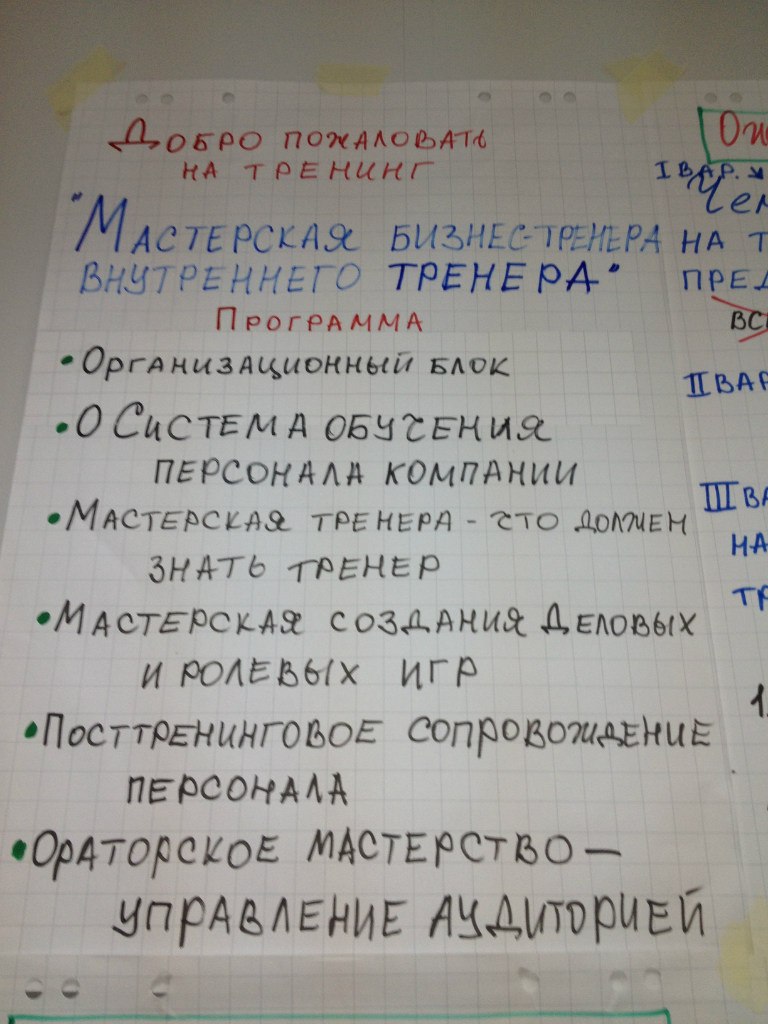 Добро пожаловать
на тренинг
"Мастерская бизнес-тренера
внутреннего тренера"
Программа
• Организационный блок
• О Система обучения
персонала компании
• Мастерская тренера - что должен
знать тренер
• Мастерская создания деловых
и ролевых игр
• Посттренинговое сопровождение
персонала
• Ораторское мастерство —
управление аудиторией
I вар.
на т
пред
II вар
III ва
на
тр
1.